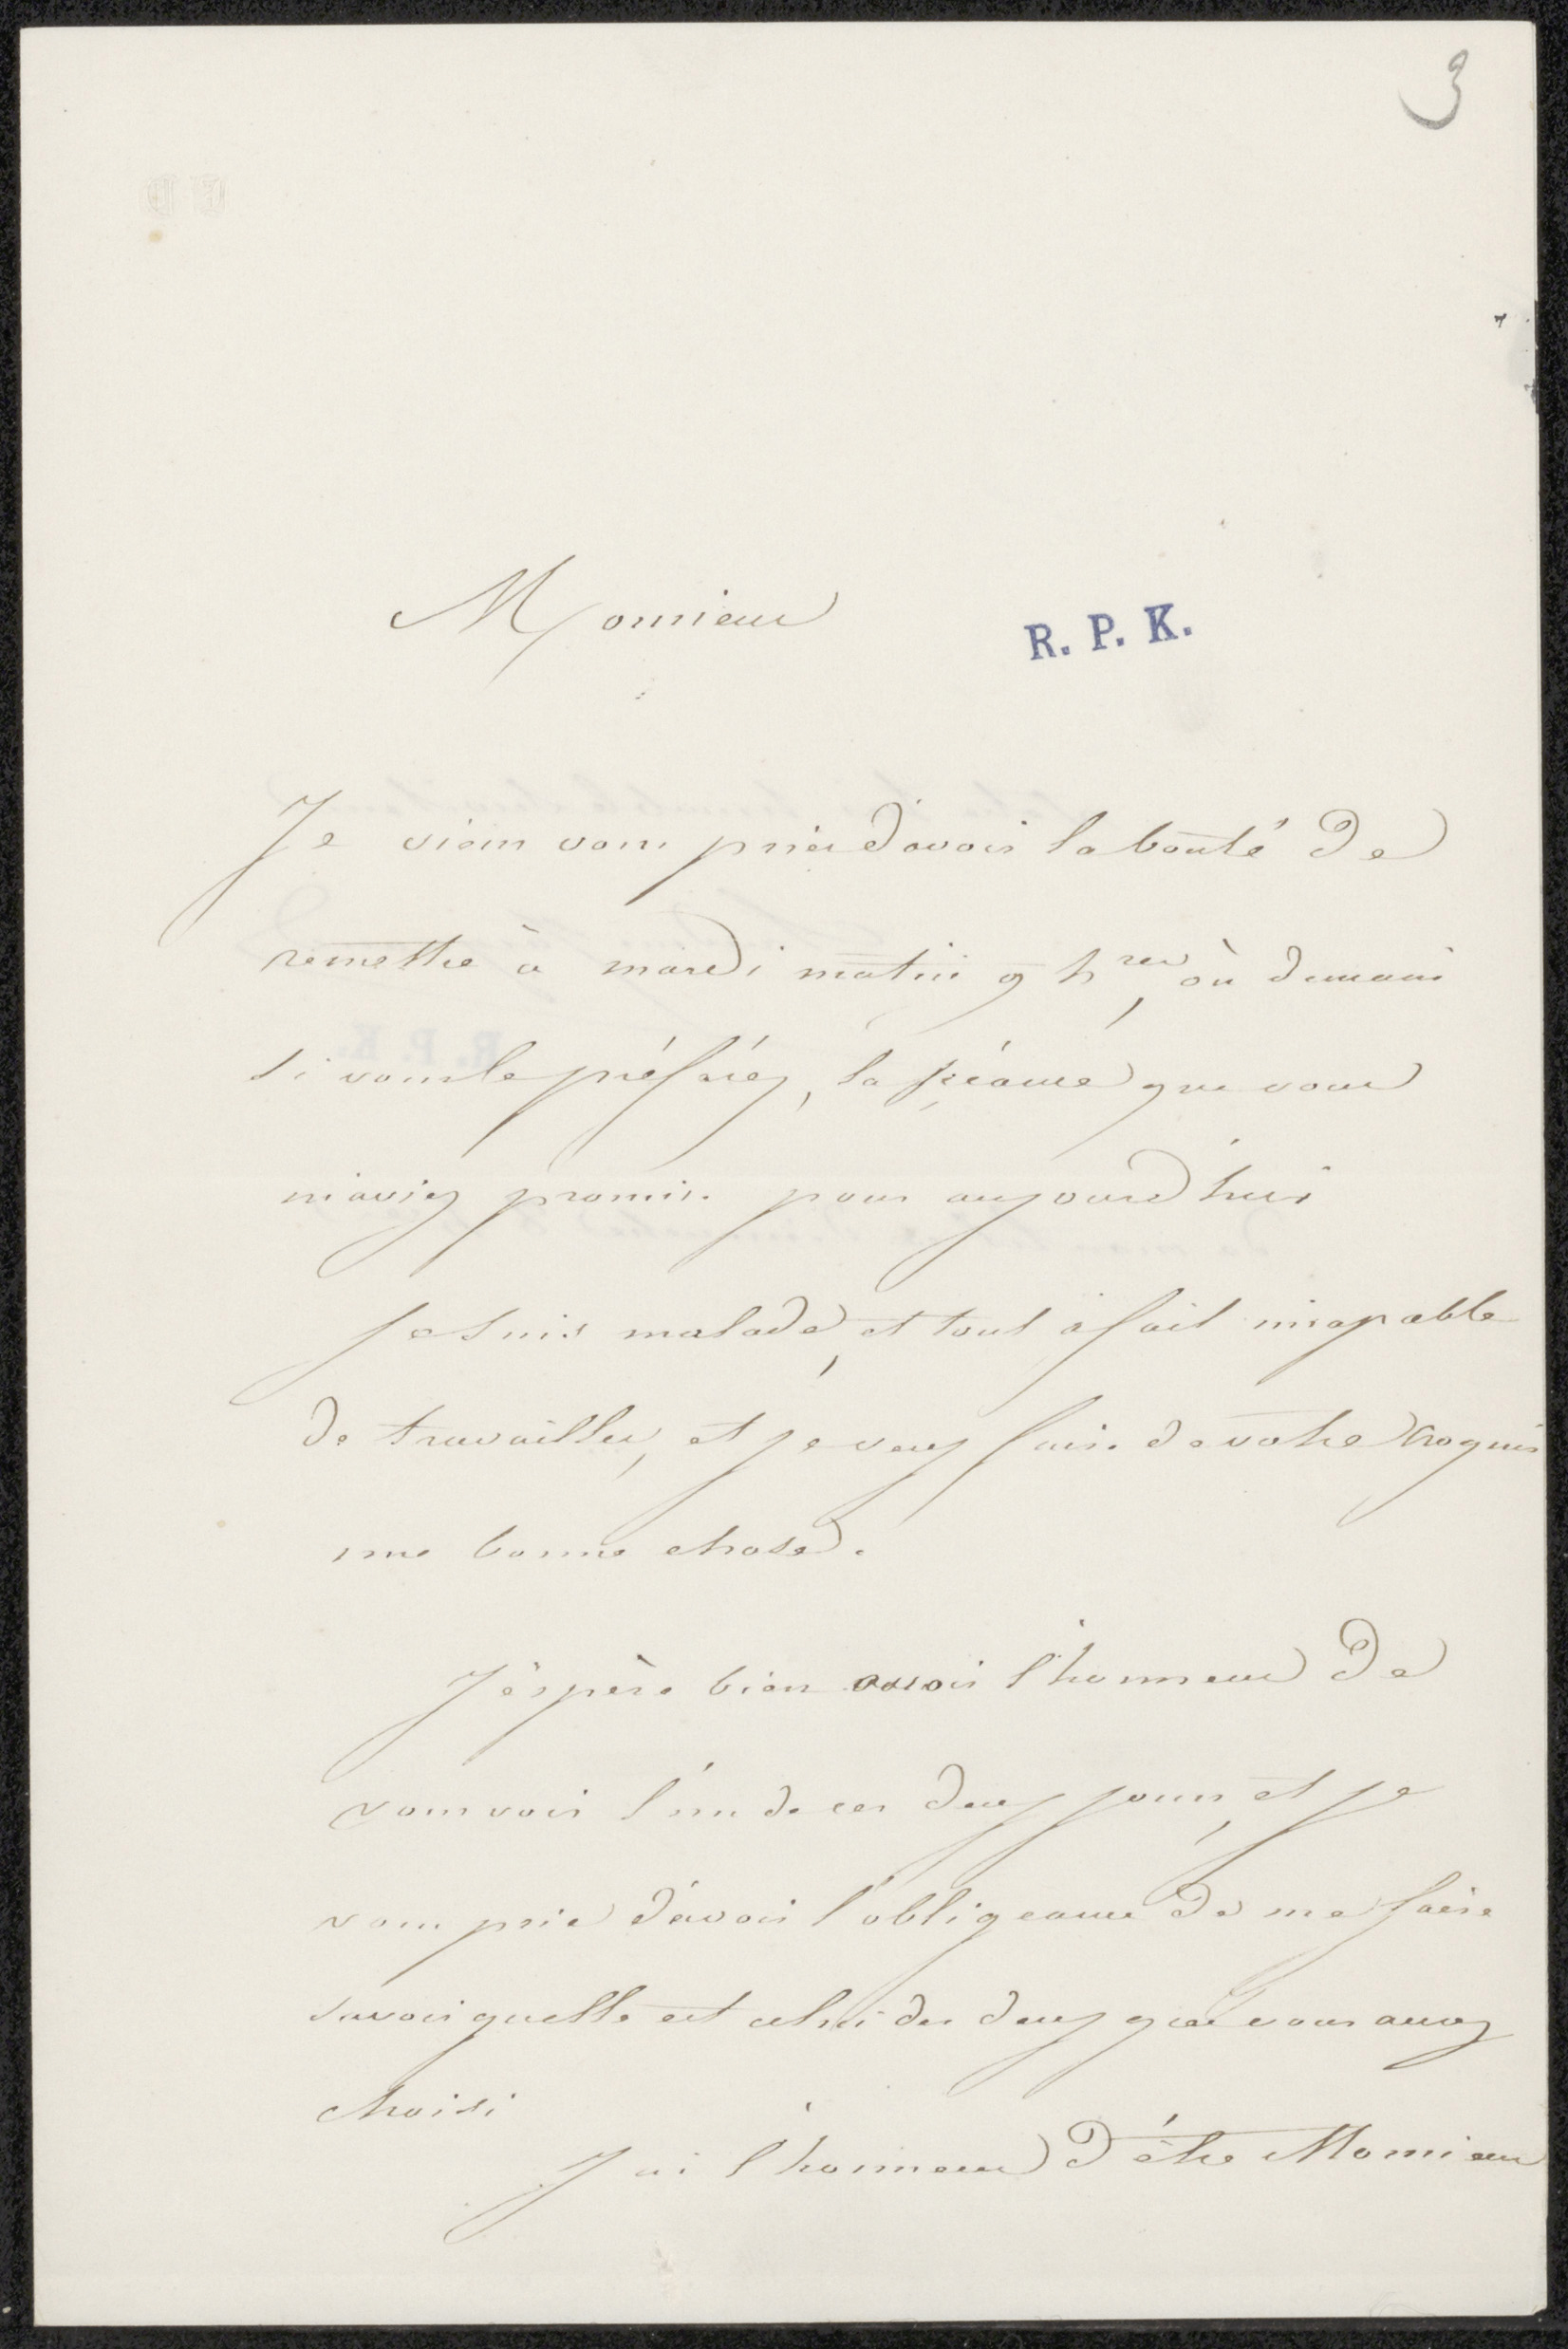 3
Monsieur
R. P. K.
Je viens vous prier d'avoir la bonté de
remettre à mardi matin 9 hres, où demain
si vous le préférez, la séance que vous
m'aviez promis pour aujourd'hui
Je suis malade, et tout à fait incapable
de travailler, et je veux faire de votre croquis
une bonne chose.
J'éspère bien avoir l'honneur de
vous voir l'un de ces deux jours, et je
vous prie d'avoir l'obligeance de me faire
savoir quelle est celui des deux que vous aurez
choisi
J'ai l'honneur d'être Monsieur